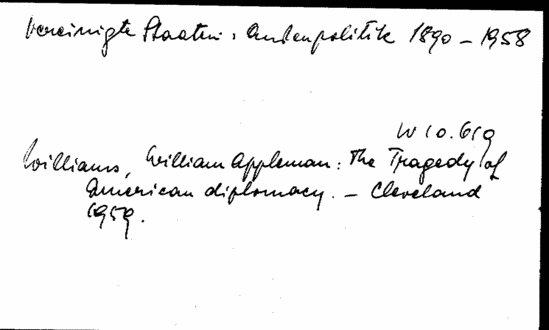 Vereinigte Staaten: Außenpolitik 1890 – 1958
W 10.619
Williams, William Appleman: The Tragedy of
American diplomacy. – Cleveland
1959.